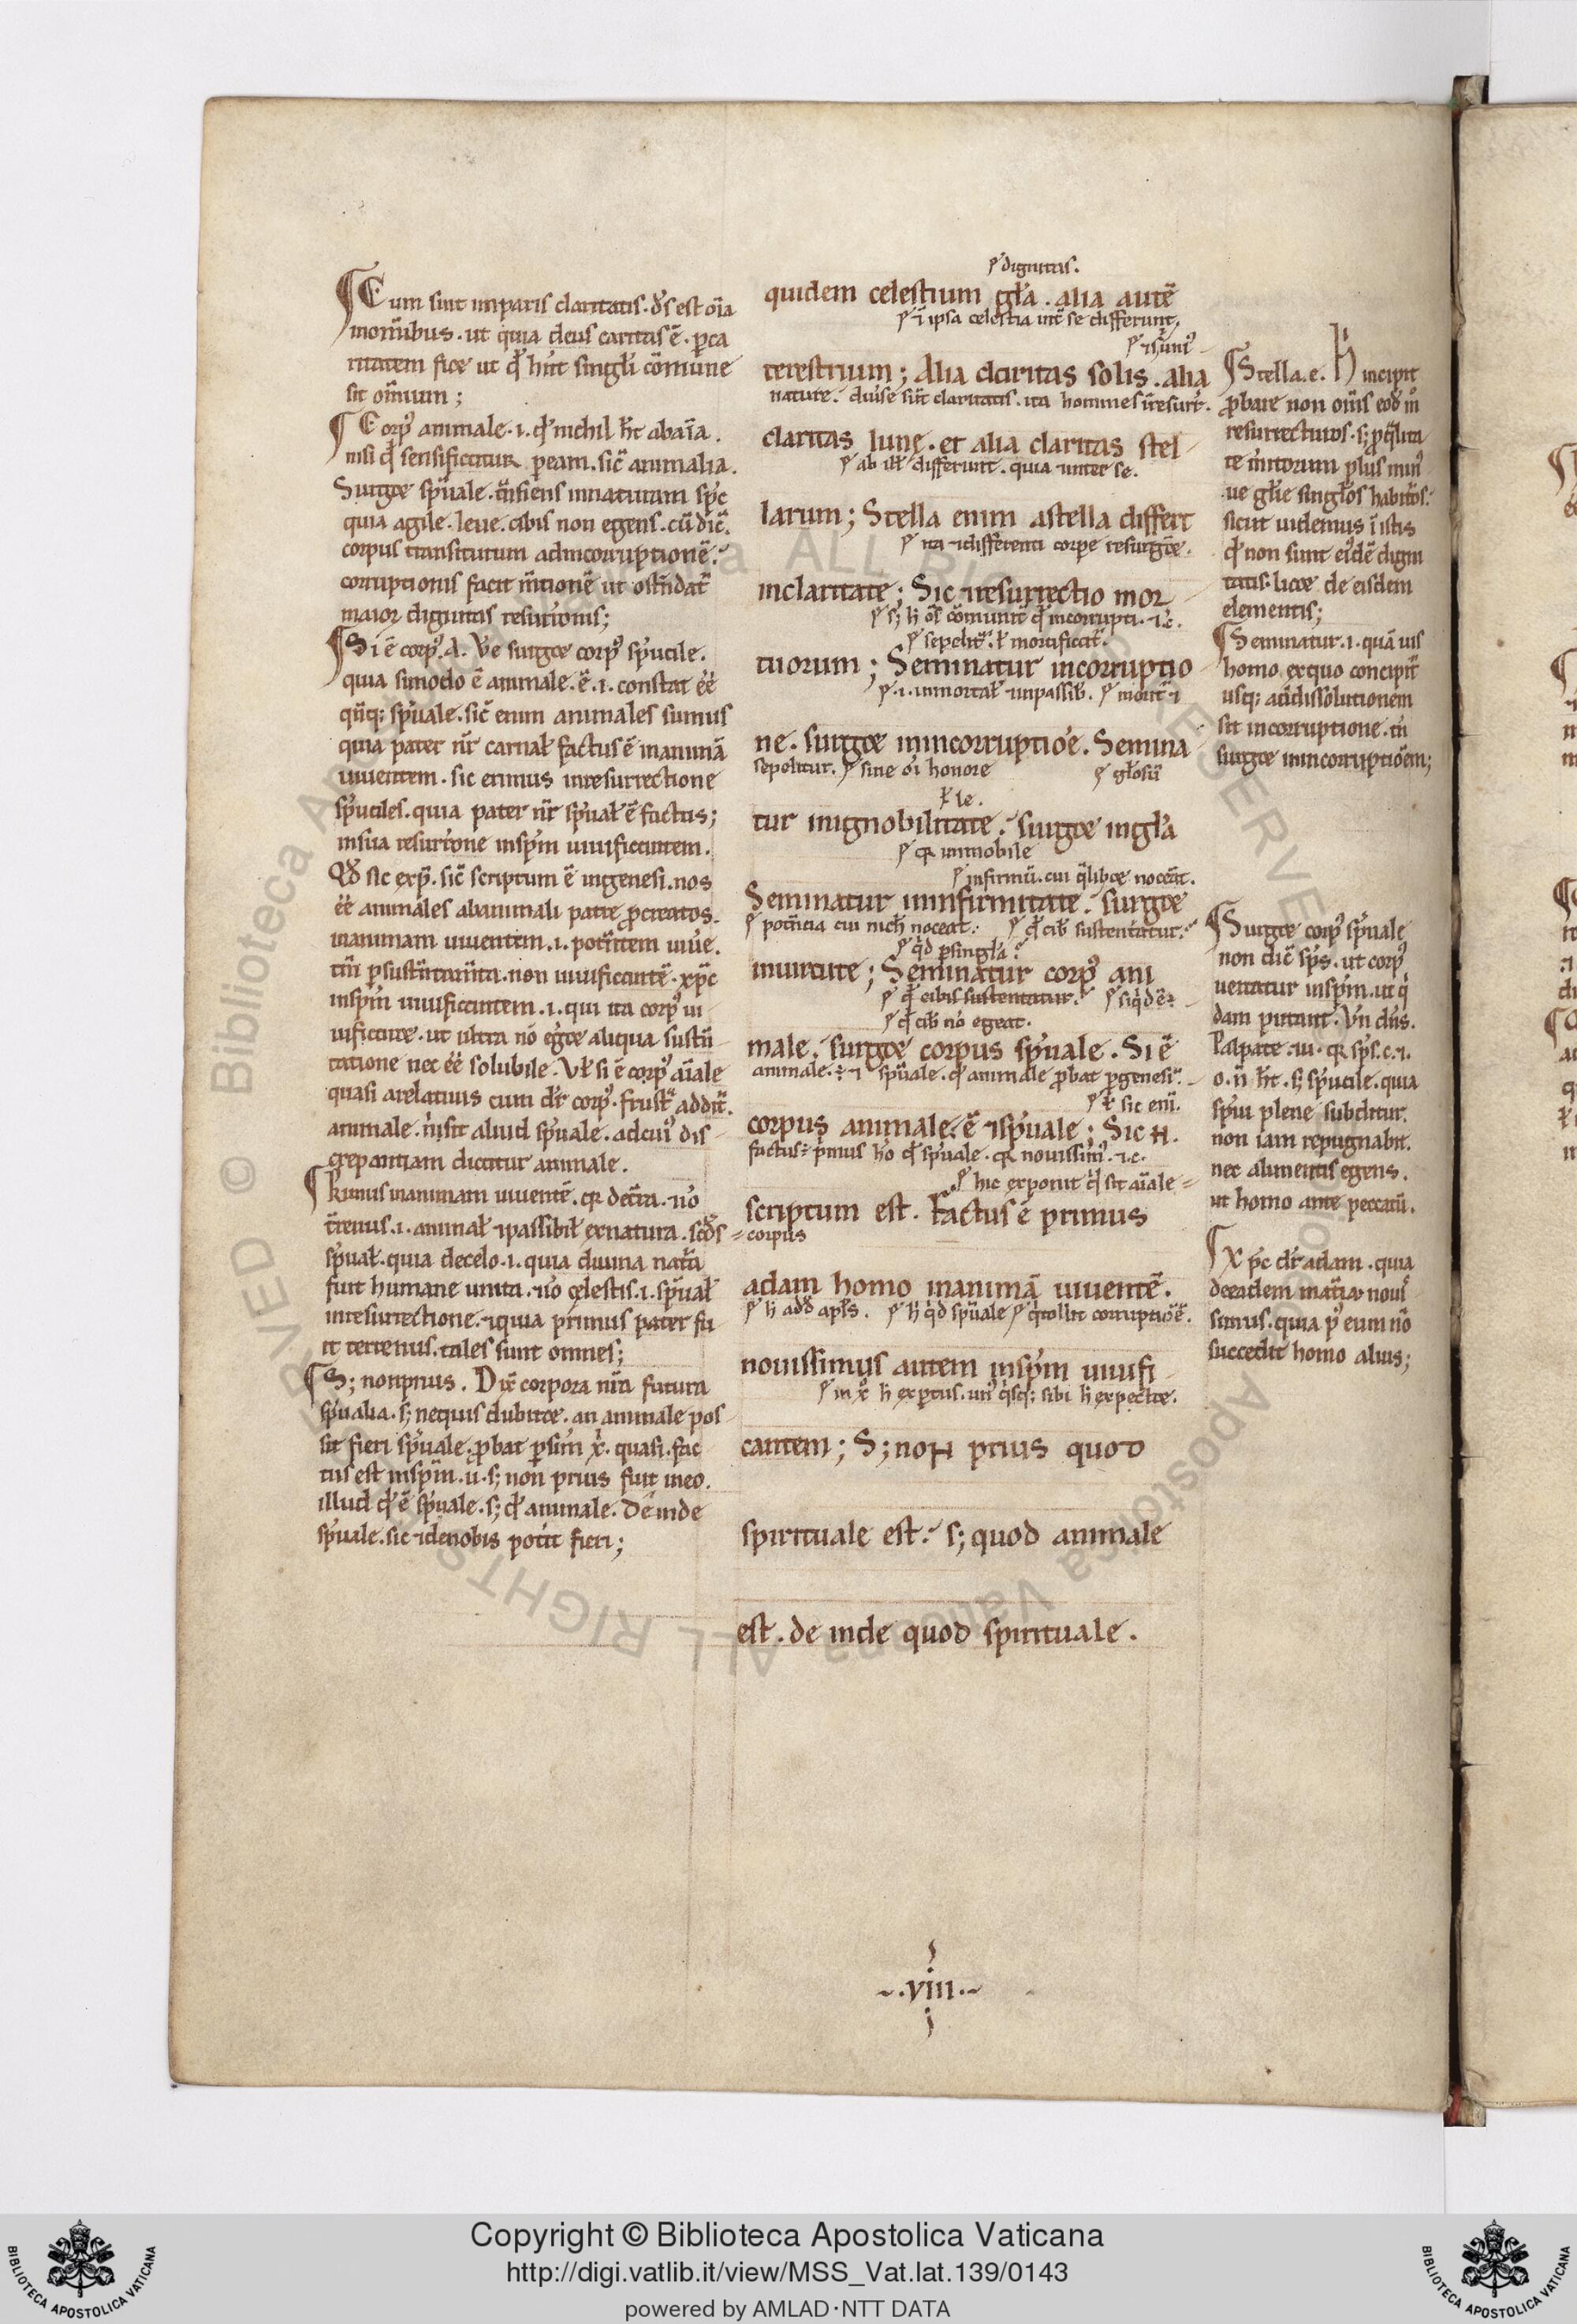 ¶Cum sint imparis claritatis. ds̄ est oīa
inomībus. ut quia deus caritas ē. ꝑca
ritatem fiet ut qđ hn̄t singłi cōmune
sit omīum;
¶Corpꝰ animale. i. qđ nichil ħt abaīa.
nisi qđ sensificatur ꝑeam. sic̄ animalia.
Surget spūale. tn̄siens innaturam spc̄
quia agile. leue. cibis non egens. cū dic̄.
corpus transiturum adincorruptionē.
corruptionis facit mtionē ut ostn̄dat̄
maior dignitas resurtionis;
¶Si ē corpꝰ. A. Ve surget corpꝰ spūale.
quia simodo ē animale. ē. i. constat eē
qn̄q; spūale. sic̄ enim animales sumus
quia pater nr̄ carnał factus ē inanimā
uiuentem. sic erimus inresurrectione
spūales. quia pater nr̄ spūał ē factus;
insua resurtione inspm̄ uiuificantem.
Qđ sic exp̄. sic̄ scriptum ē ingenesi. nos
eē animales abanimali patre ꝓcreatos.
inanimam uiuentem. i. potn̄tem uiue.
tm̄ ꝑsustn̄tamta. non uiuificantē. xpc̄
inspm̄ uiuificantem. i. qui ita corpꝰ ui
uificaret. ut ultra nō egeret aliqua sustn̄
tatione nec eē solubile. Vł si ē corpꝰ aīale
quasi arelatiuis cum dr̄ corpꝰ. frustͣ addit̄.
animale. nisit aliud spūale. adcuiꝰ dis
crepantiam dicatur animale.
¶Primus inanimam uiuentē. qr de tͣra. uō
tͣrenus. i. animał ⁊passibił exnatura. scđs
spūał. quia decelo. i. quia diuina natͣa
fuit humane unita. uō cęlestis. i. spūał
inresurrectione. ⁊quia primus pater fu
it terrenus. tales sunt omnes;
¶S; nonprius. Dix̄ corpora nrā futura
spūalia. s; nequis dubitet. an animale pos
sit fieri spūale. ꝓbat ꝑsim̄ x̄. quasi. fac
tus est inspm̄. u. s; non prius fuit ineo.
illud qđ ē spūale. s; qđ animale. Deinde
spūale. sic ⁊denobis potit fieri;
dignitas.
quidem celestium gła. alia autē
ī ipsa celestia int̄ se differunt.
⁊sunꝰ
terestrium; Alia claritas solis. alia
nature. diuise sunt claritatis. ita homines īresurt.
claritas lunę. et alia claritas stel
ab ił differunt. quia ⁊inter se.
larum; Stella enim astella differt
ita ⁊differenti corpe resurget.
inclaritate; Sic ⁊resurrectio mor
s; h̄ oс̄ cōmunit̄ qđ incorrupti. ⁊c̄.
sepelit̄. ł mortificat̄.
tuorum; Seminatur incorruptio
i. inmortał ⁊inpassib. morit̄ ⁊
ne. surget inincorruptioē. Semina
sepelitur. sine oī honore głosū
ł le.
tur inignobilitate. surget ingła
qr inmobile
infirmū. cui qͥlibet nocēt.
Seminatur ininfirmitate. surget
potn̄tia cui nich noceat. qđ cib sustentatur.
qͥd ꝑsingła?
inuirtute; Seminatur corpꝰ ani
qđ cibis sustentatur. siqͥd ē?
qđ cib nō egeat.
male. surget corpus spūale. Si ē
animale. ē ⁊ spūale. qđ animale ꝓbat ꝑgenesī.
ł sic enī.
corpus animale. ē ⁊spūale; Sic H.
factus ē pͥmus hō qđ spūale. qr nouissimꝰ. ⁊c.
hic exponit qđ sit aīale
scriptum est. Factus ē primus
corpus
adam homo inanimā uiuentē.
h̄ addͥ apłs. h̄ qͥd spūale qͥ tollit corruptiōē.
nouissimus autem inspm̄ uiuifi
in x̄ h̄ exꝑtus. unꝰ qͥsq; sibi h̄ expectet.
cantem; S; noн prius quod
spirituale est. s; quod animale
est. de inde quod spirituale.
¶Stella. e. H̄ incipit
ꝓbare non om̄s eođ m̊
resurrecturos. s; ꝑqͣlita
te m̄itorum plus minꝰ
ue głie singłos habit̄os.
sicut uidemus ī istis
qđ non sunt eiꝰdē digni
tatis. licet de eisdem
elementis;
¶Seminatur. i. quā uis
homo exquo concipit̄
usq; addissolutionem
sit incorruptione. tn̄
surget inincorruptiōem;
¶Surget corpꝰ spūale
non dic̄ sps̄. ut corpꝰ
uertatur inspm̄. ut qͥ
dam putant. Vn̄ dn̄s.
Palpate. ⁊ui. qr sps̄. c. ⁊.
o. n̄ ħt. s; spūale. quia
spūi plene subditur.
non iam repugnabit.
nec alimentis egens.
ut homo ante peccatū.
¶Xpc̄ dr̄ adam. quia
deeadem mat̄ia nouꝰ
sumus. quia pꝰ eum nō
succedit homo alius;
.viii.
Copyright © Biblioteca Apostolica Vaticana
http://digi.vatlib.it/view/MSS_Vat.lat.139/0143
powered by AMLAD·NTT DATA